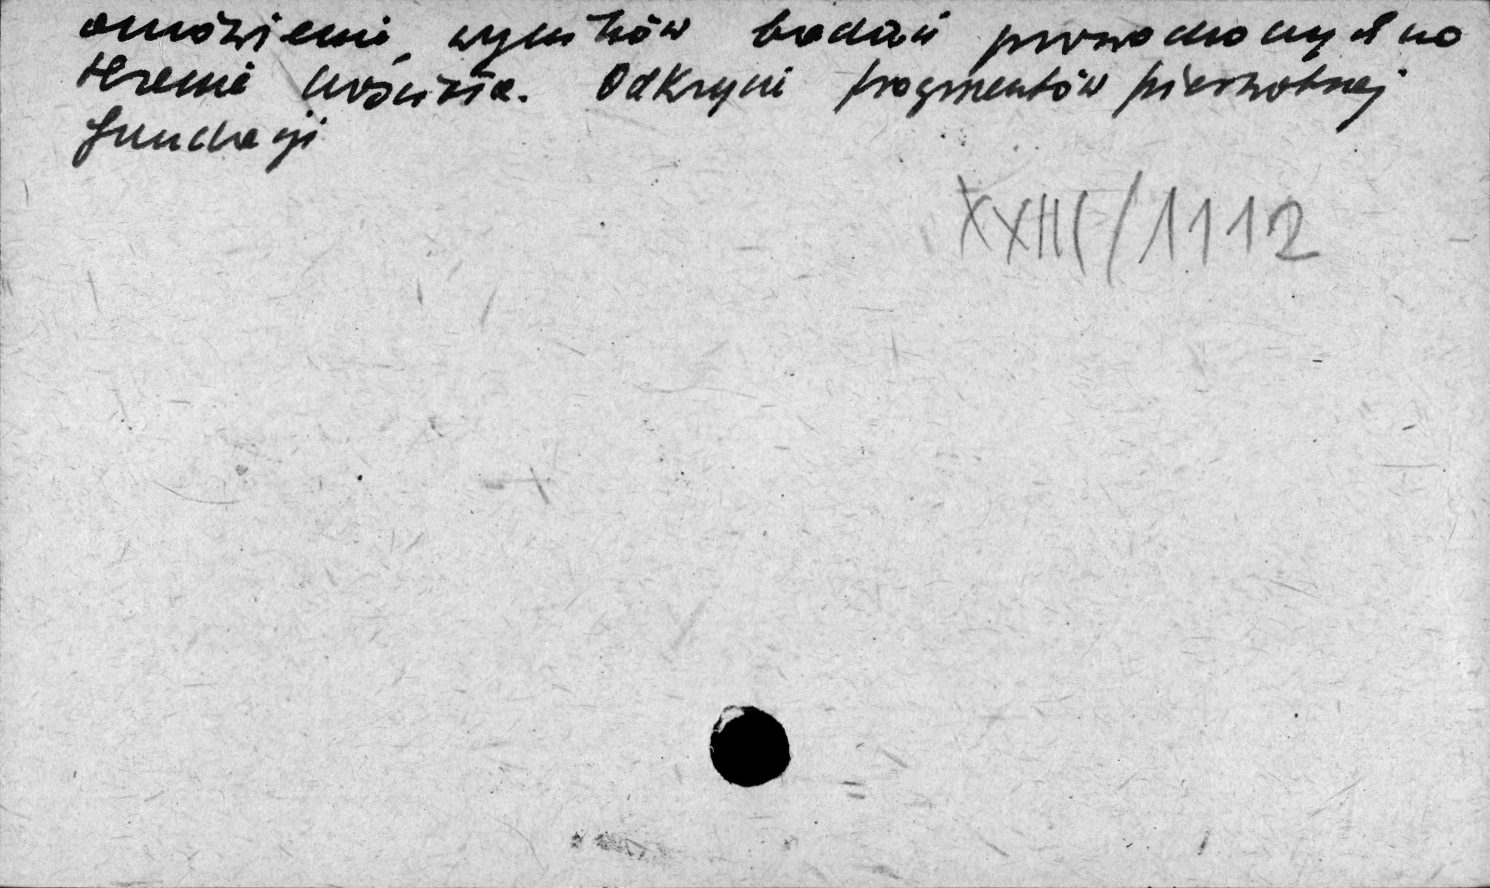 omówienie wyników badań prowadzonych na
terenie kościoła. Odkrycie fragmentów pierwotnej
fundacji
XXIII/1112